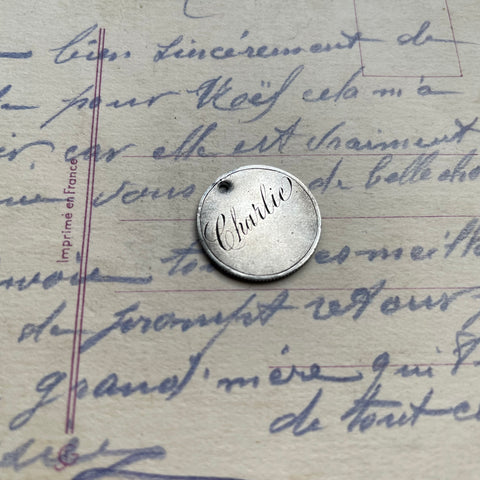 bien sincèrement de
pour Noël cela m'a
car elle est vraiment
vous de belle cho
Charlie
Imprimé en France
conseill
de prompt retour
grand'mère qui
de tout c